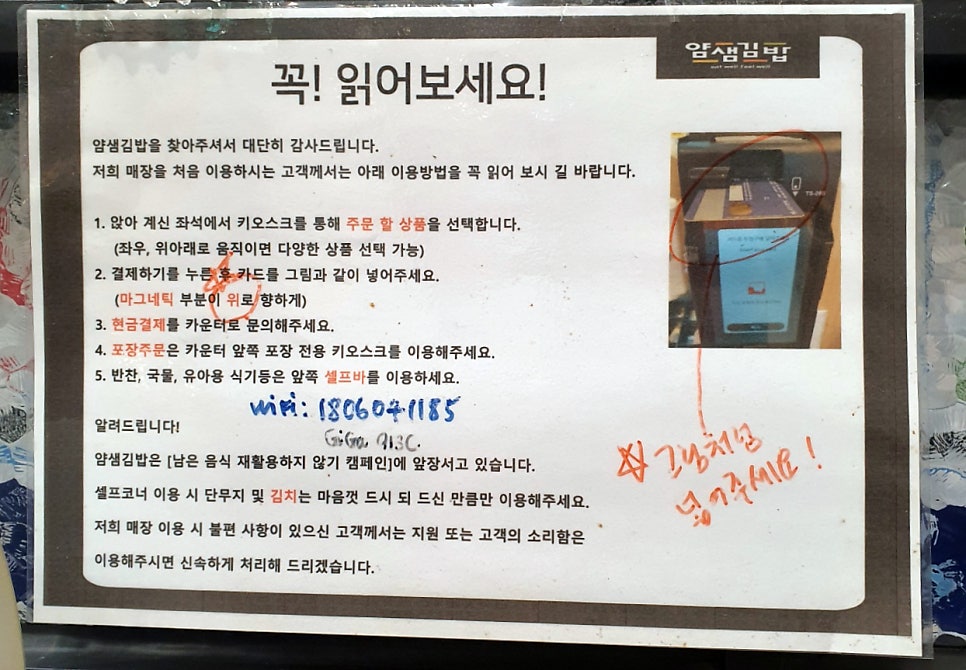 얌샘김밥
eat well feel well
꼭! 읽어보세요!
얌샘김밥을 찾아주셔서 대단히 감사드립니다.
저희 매장을 처음 이용하시는 고객께서는 아래 이용방법을 꼭 읽어 보시 길 바랍니다.
1. 앉아 계신 좌석에서 키오스크를 통해 주문 할 상품을 선택합니다.
(좌우, 위아래로 움직이면 다양한 상품 선택 가능)
2. 결제하기를 누른 후 카드를 그림과 같이 넣어주세요.
(마그네틱 부분이 위로 향하게)
3. 현금결제를 카운터로 문의해주세요.
4. 포장주문은 카운터 앞쪽 포장 전용 키오스크를 이용해주세요.
5. 반찬, 국물, 유아용 식기등은 앞쪽 셀프바를 이용하세요.
wifi: 1806071185
GiGa 913C.
알려드립니다!
얌샘김밥은 [남은 음식 재활용하지 않기 캠페인]에 앞장서고 있습니다.
셀프코너 이용 시 단무지 및 김치는 마음껏 드시 되 드신 만큼만 이용해주세요.
저희 매장 이용 시 불편 사항이 있으신 고객께서는 지원 또는 고객의 소리함은
이용해주시면 신속하게 처리해 드리겠습니다.
그림처럼
넣어주세요!